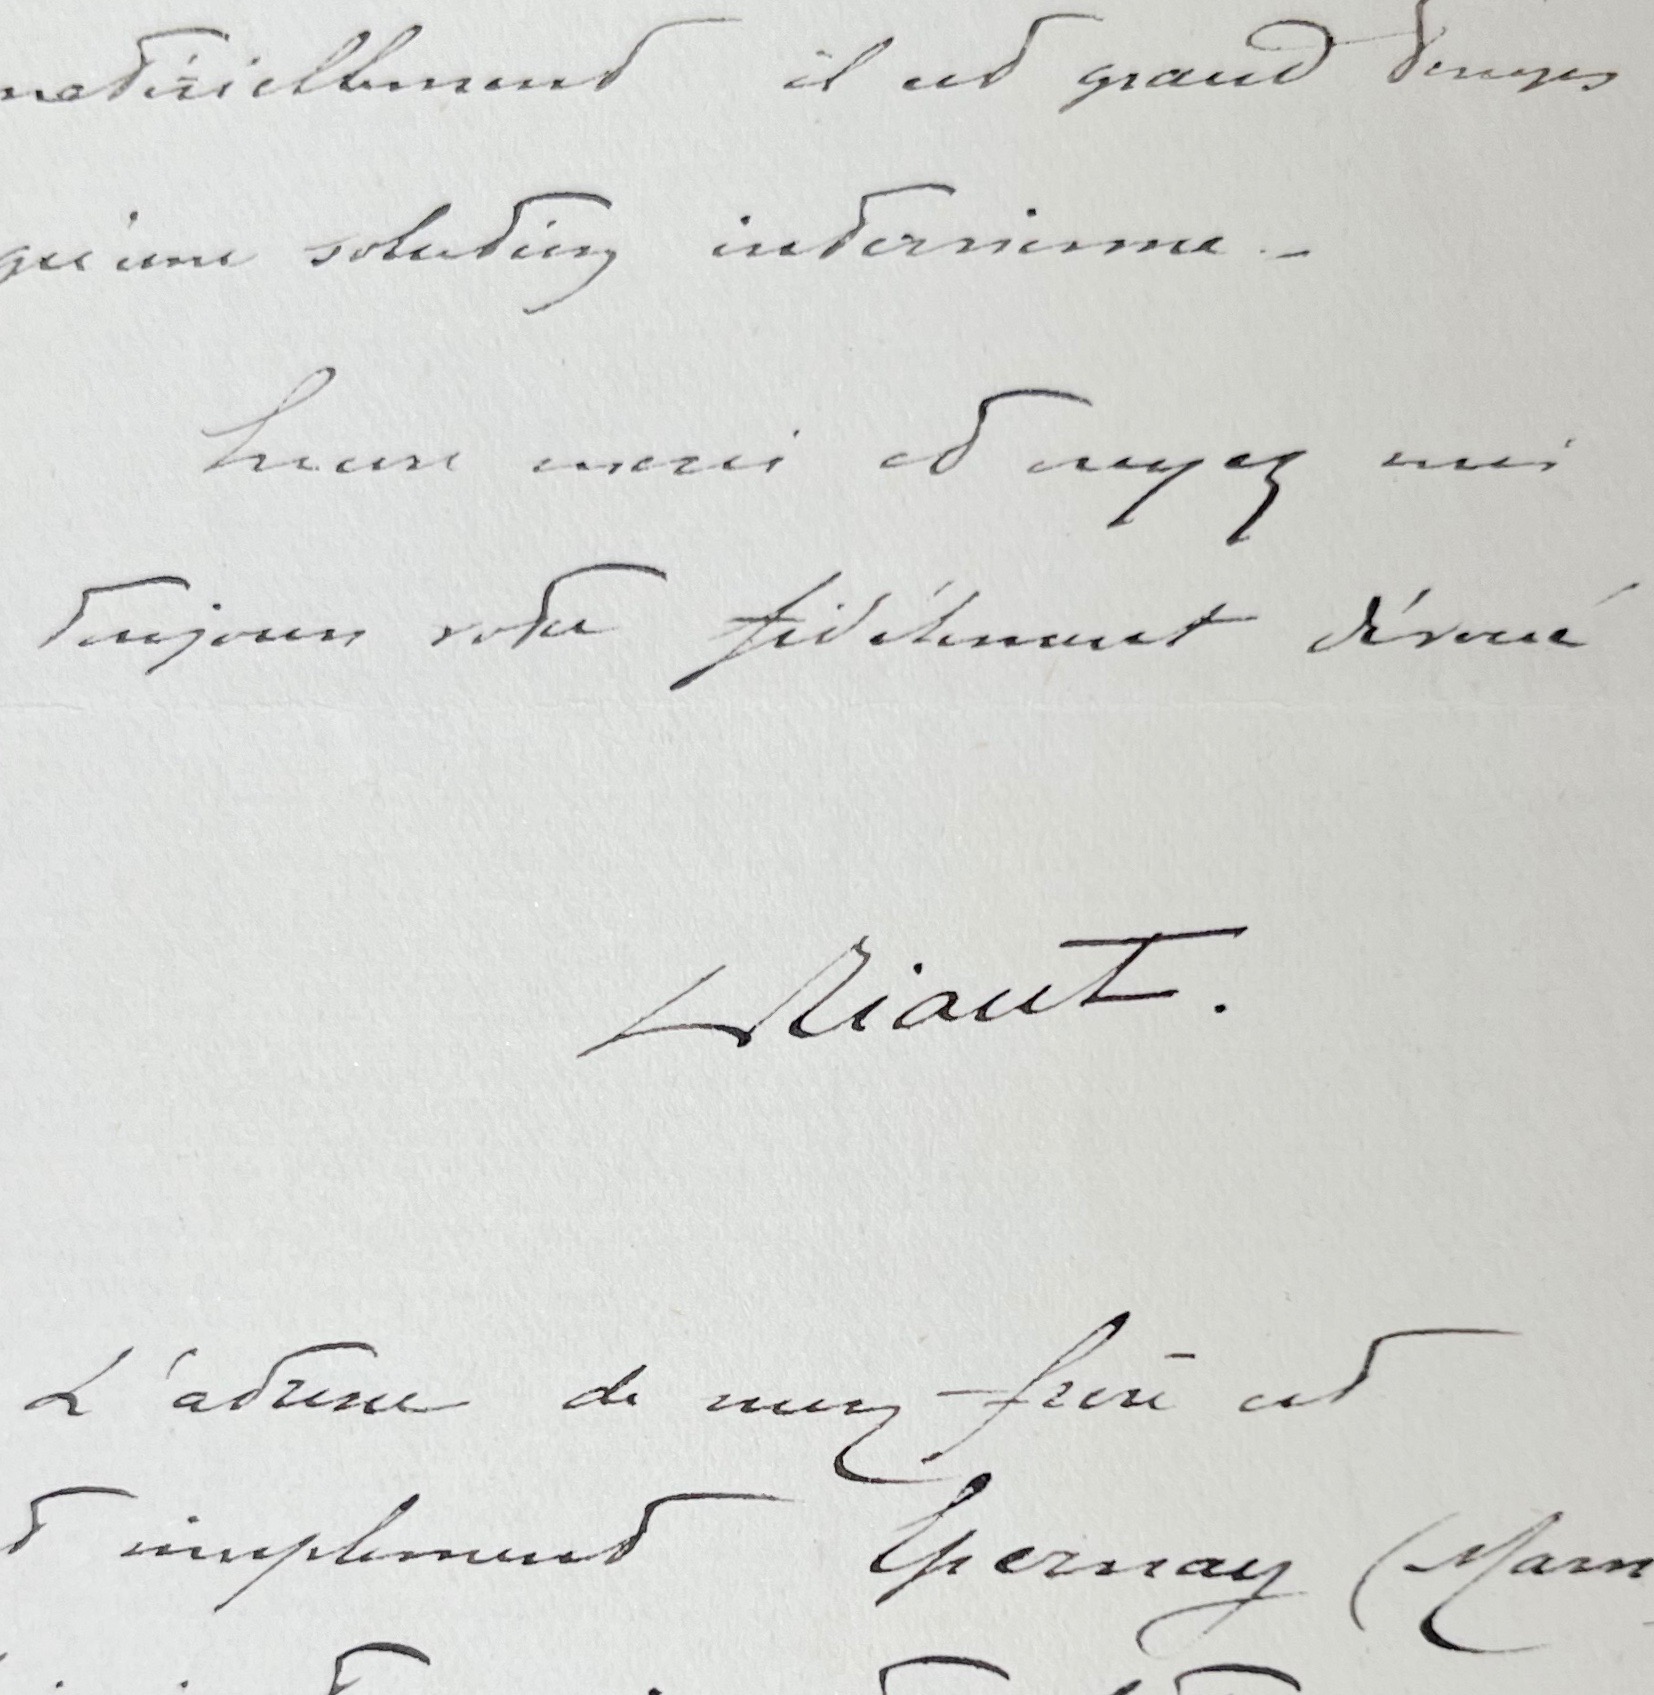 matériellement il est grand temps
qu'une solution intervienne. -
Encore merci et croyez moi
toujours votre fidèlement dévoué
Riant.
L'adresse de mon frère est
t simplement Epernay (Marn